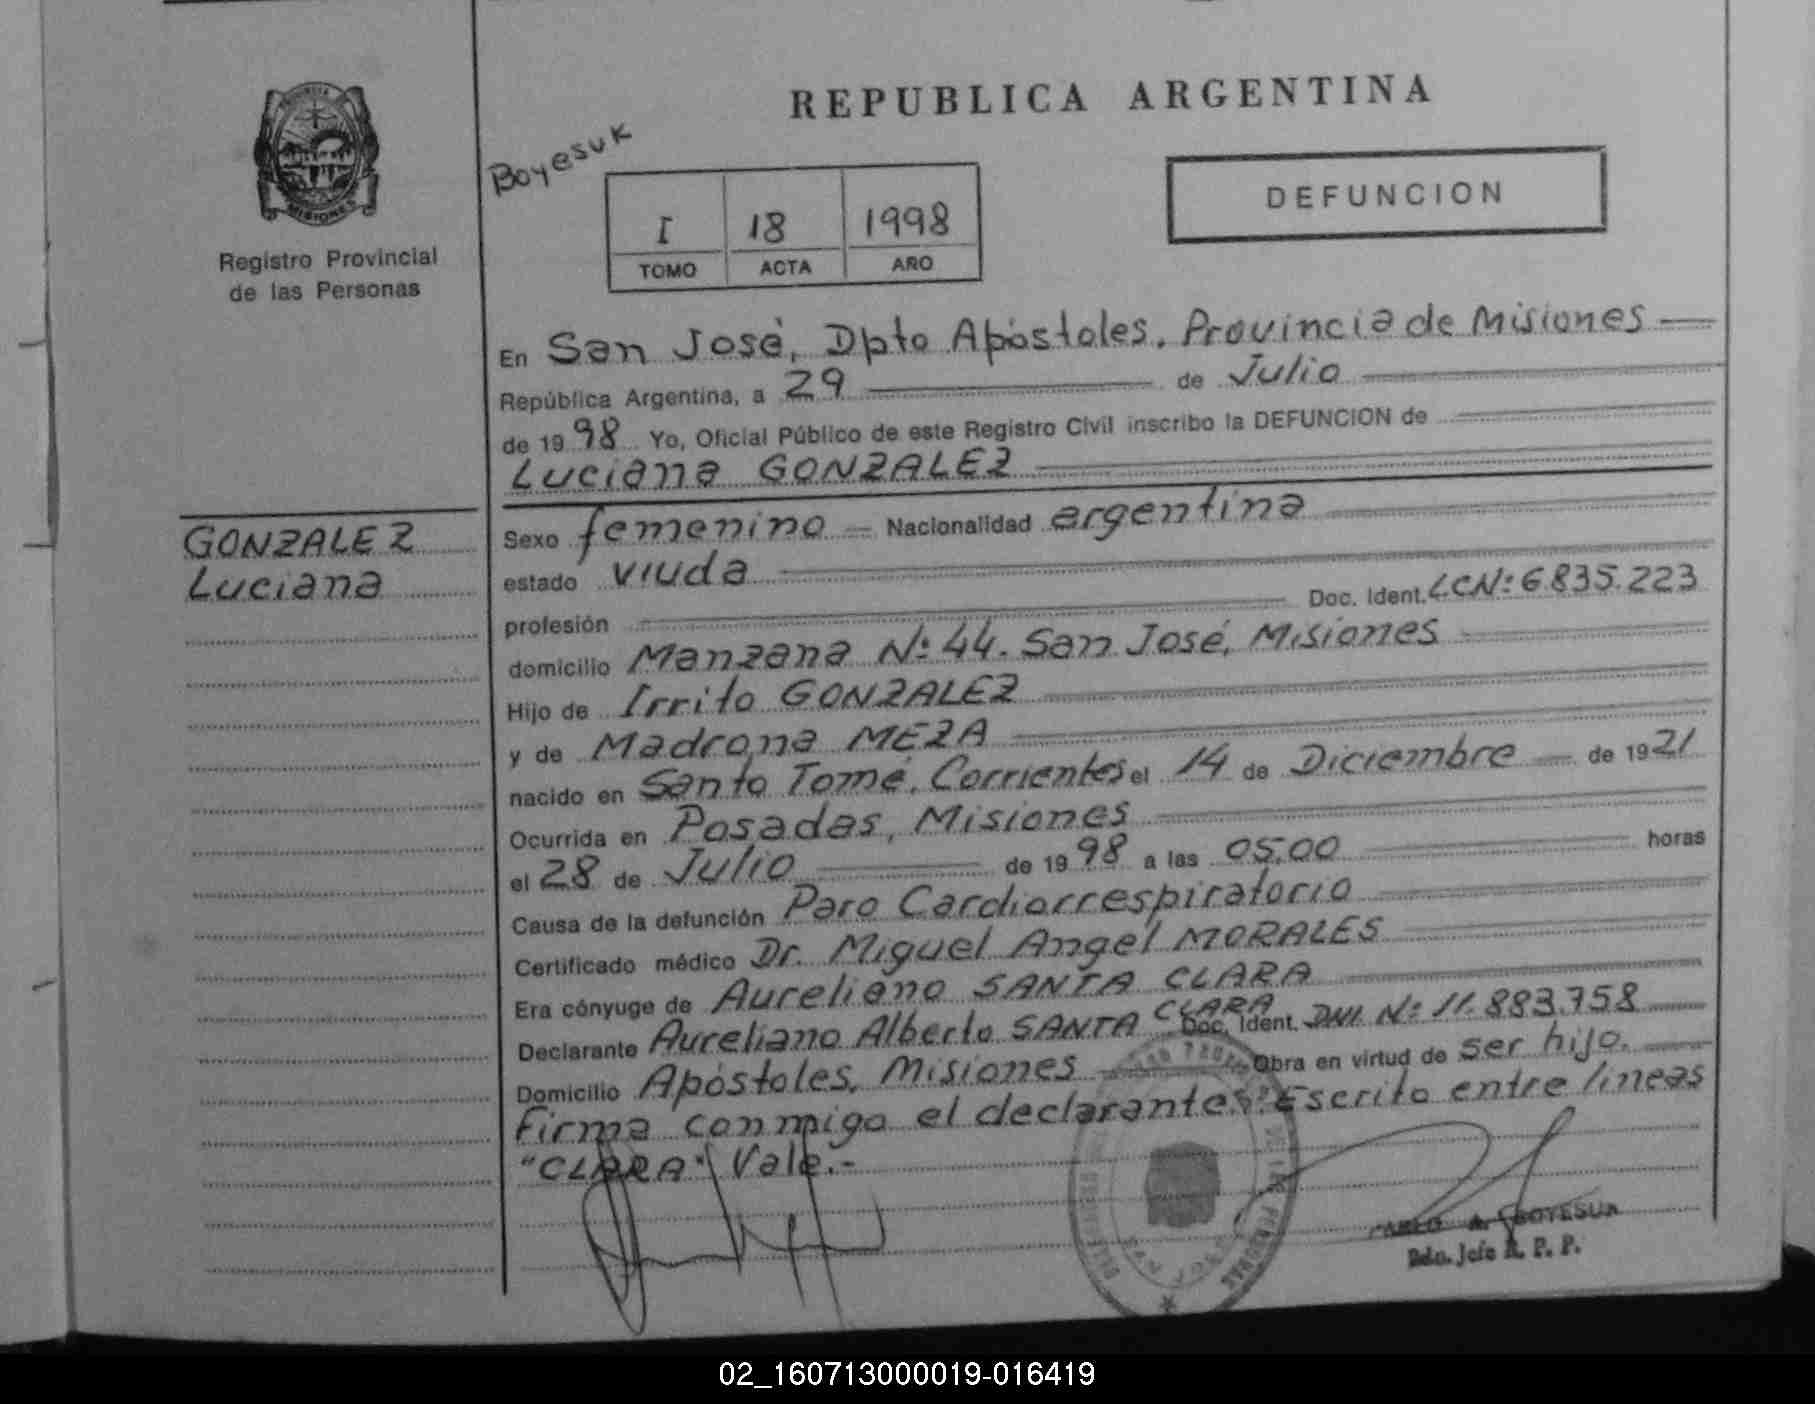 REPUBLICA ARGENTINA
PROVINCIA
MISIONES
Registro Provincial
de las Personas
Boyesuk
I 18 1998
TOMO ACTA AÑO
DEFUNCION
En San José, Dpto Apóstoles, Provincia de Misiones
República Argentina, a 29 de Julio
de 1998 Yo, Oficial Público de este Registro Civil inscribo la DEFUNCION de
Luciana GONZALEZ
GONZALEZ
Luciana
Sexo femenino Nacionalidad argentina
estado viuda
profesión Doc. Ident. LCNº: 6.835.223
domicilio Manzana Nº: 44. San José, Misiones
Hijo de Irrito GONZALEZ
y de Madrona MEZA
nacido en Santo Tomé, Corrientes el 14 de Diciembre de 1921
Ocurrida en Posadas, Misiones
el 28 de Julio de 1998 a las 05,00 horas
Causa de la defunción Paro Cardiorrespiratorio
Certificado médico Dr. Miguel Angel MORALES
Era cónyuge de Aureliano SANTA CLARA
Declarante Aureliano Alberto SANTA CLARA Doc. Ident. DNI. Nº: 11.883.758
Domicilio Apóstoles, Misiones Obra en virtud de ser hijo.
Firma conmigo el declarante. Escrito entre líneas
"CLARA" Vale.-
A. BOYESUK
Jefe R. P. P.
02_160713000019-016419